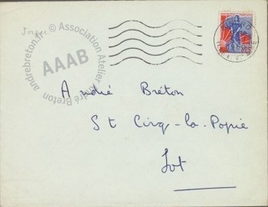 andrebreton.fr © Association Atelier André Breton
AAAB
André Breton
St Cirq-la-Popie
Lot